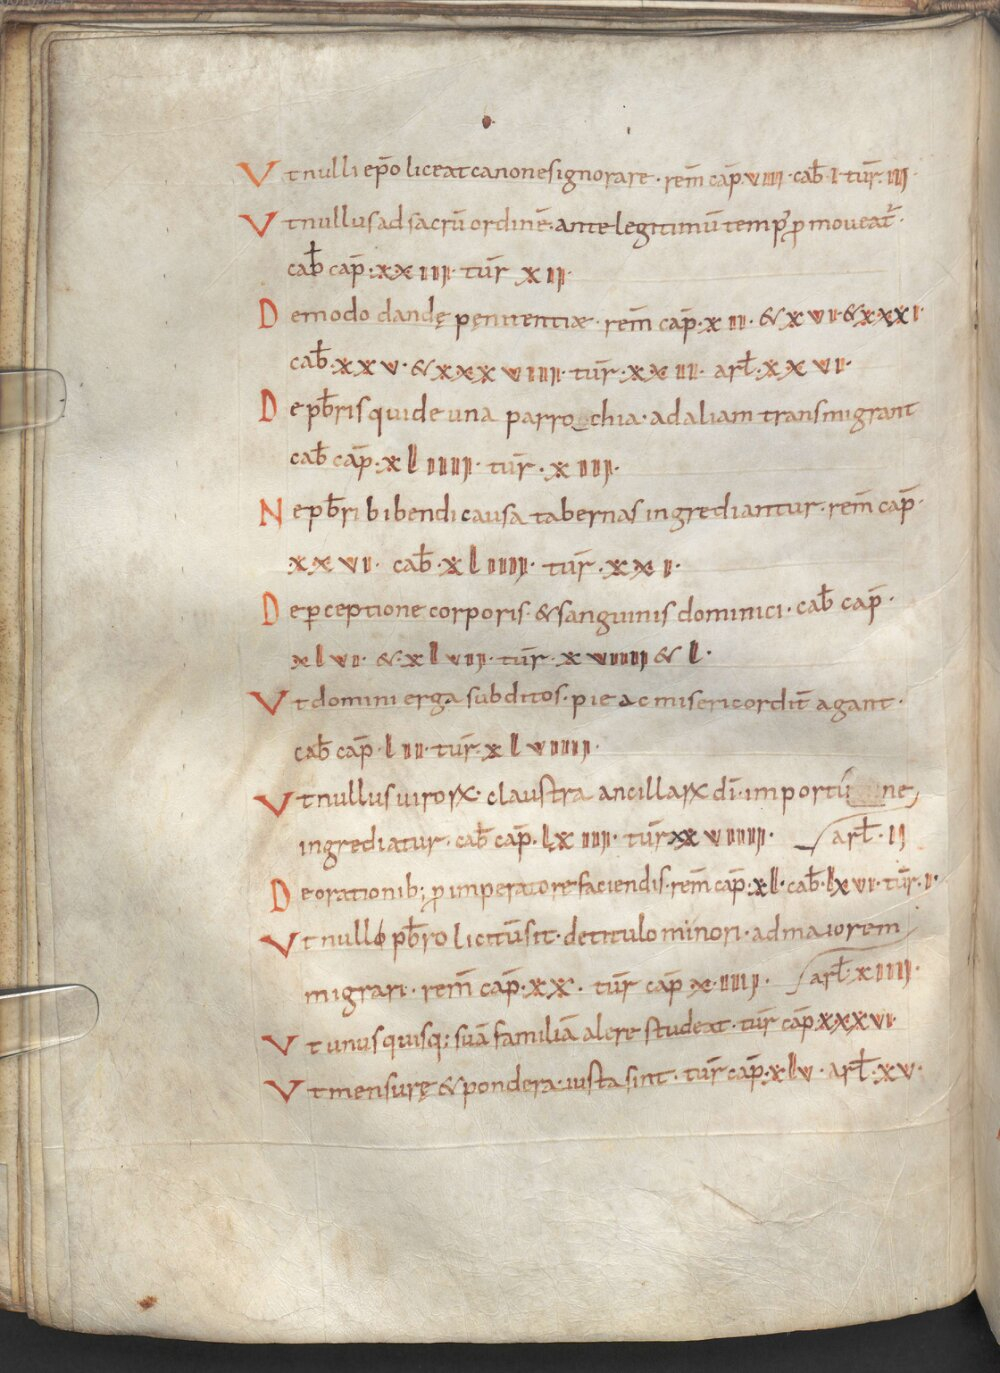 Vt nulli ep̄o liceat canones ignorare · rem̄ cap̄ · VIIII · cab̄ · I · tur̄ · III ·
Vt nullus ad sacrū ordinē · ante legitimū temp᾽ p̱moveat᾽ ·
cab̄ cap̄ · XXIIII · tur̄ XII ·
De modo dandę pęnitentiæ · rem̄ cap̄ · XII · & XVI · & XXXI ·
cab̄ · XXV · & XXXVIIII · tur̄ · XXII · arl̄ · XXVI ·
De pb̄ris qui de una parrochia · ad aliam transmigrant
cab̄ cap̄ · XLIIII · tur̄ · XIIII ·
Ne pb̄ri bibendi causa tabernas ingrediantur · rem̄ cap̄ ·
XXVI · cab̄ · XLIIII · tur̄ · XXI ·
De ꝑceptione corporis · & sanguinis dominici · cab̄ cap̄ ·
XLVI · & · XLVII · tur̄ · XVIIII & L ·
Vt domini erga subditos · pie ac misericordit̄ agant ·
cab̄ cap̄ · LII · tur̄ · XLVIIII ·
Vt nullus uiroꝝ · claustra ancillaꝝ dī · importune
ingrediatur · cab̄ cap̄ · LXIIII · tur̄ XXVIIII · arl̄ · II
De orationib; ꝓ imperatore faciendis · rem̄ cap̄ · XL · cab̄ · LXVI · tur̄ · I ·
Vt nullo pb̄ro licitū sit · de titulo minori · ad maiorem
migrari · rem̄ cap̄ · XX · tur̄ cap̄ XIIII · arl̄ · XIIII ·
Vt unusquisq; suā familiā alere studeat · tur̄ cap̄ XXXVI ·
Vt mensurę & pondera · iusta sint · tur̄ cap̄ · XLV · arl̄ · XV ·